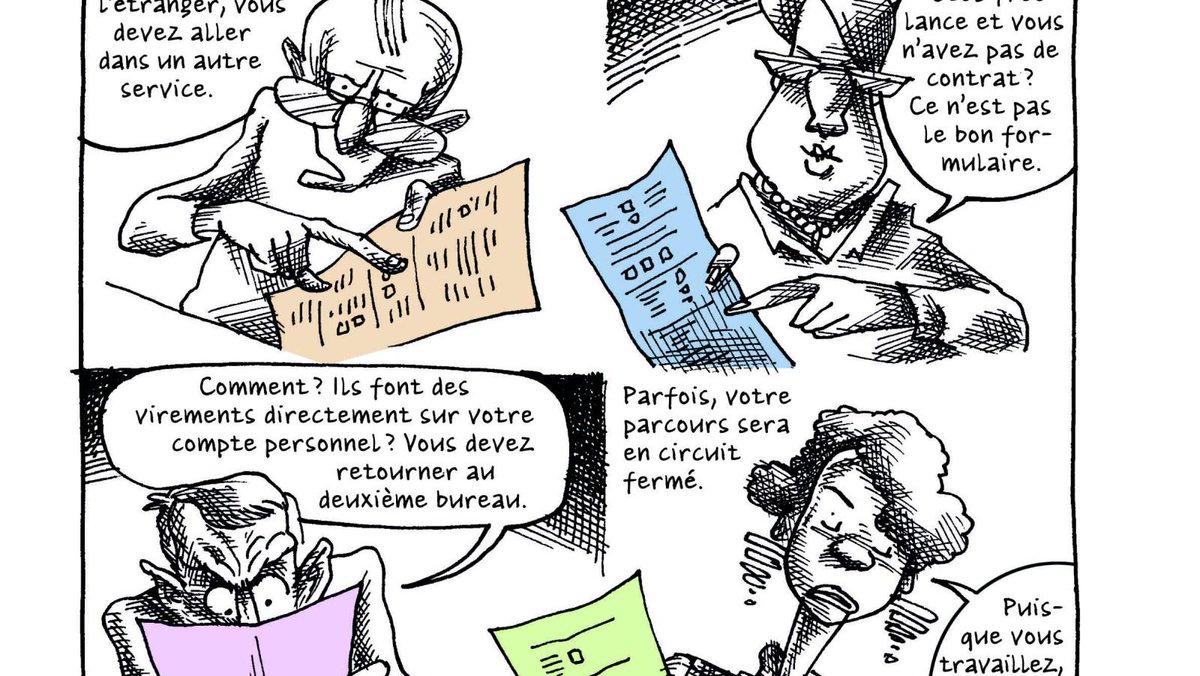 l'étranger, vous
devez aller
dans un autre
service.
lance et vous
n'avez pas de
contrat ?
Ce n'est pas
le bon for-
mulaire.
Comment ? Ils font des
virements directement sur votre
compte personnel ? Vous devez
retourner au
deuxième bureau.
Parfois, votre
parcours sera
en circuit
fermé.
Puis-
que vous
travaillez,